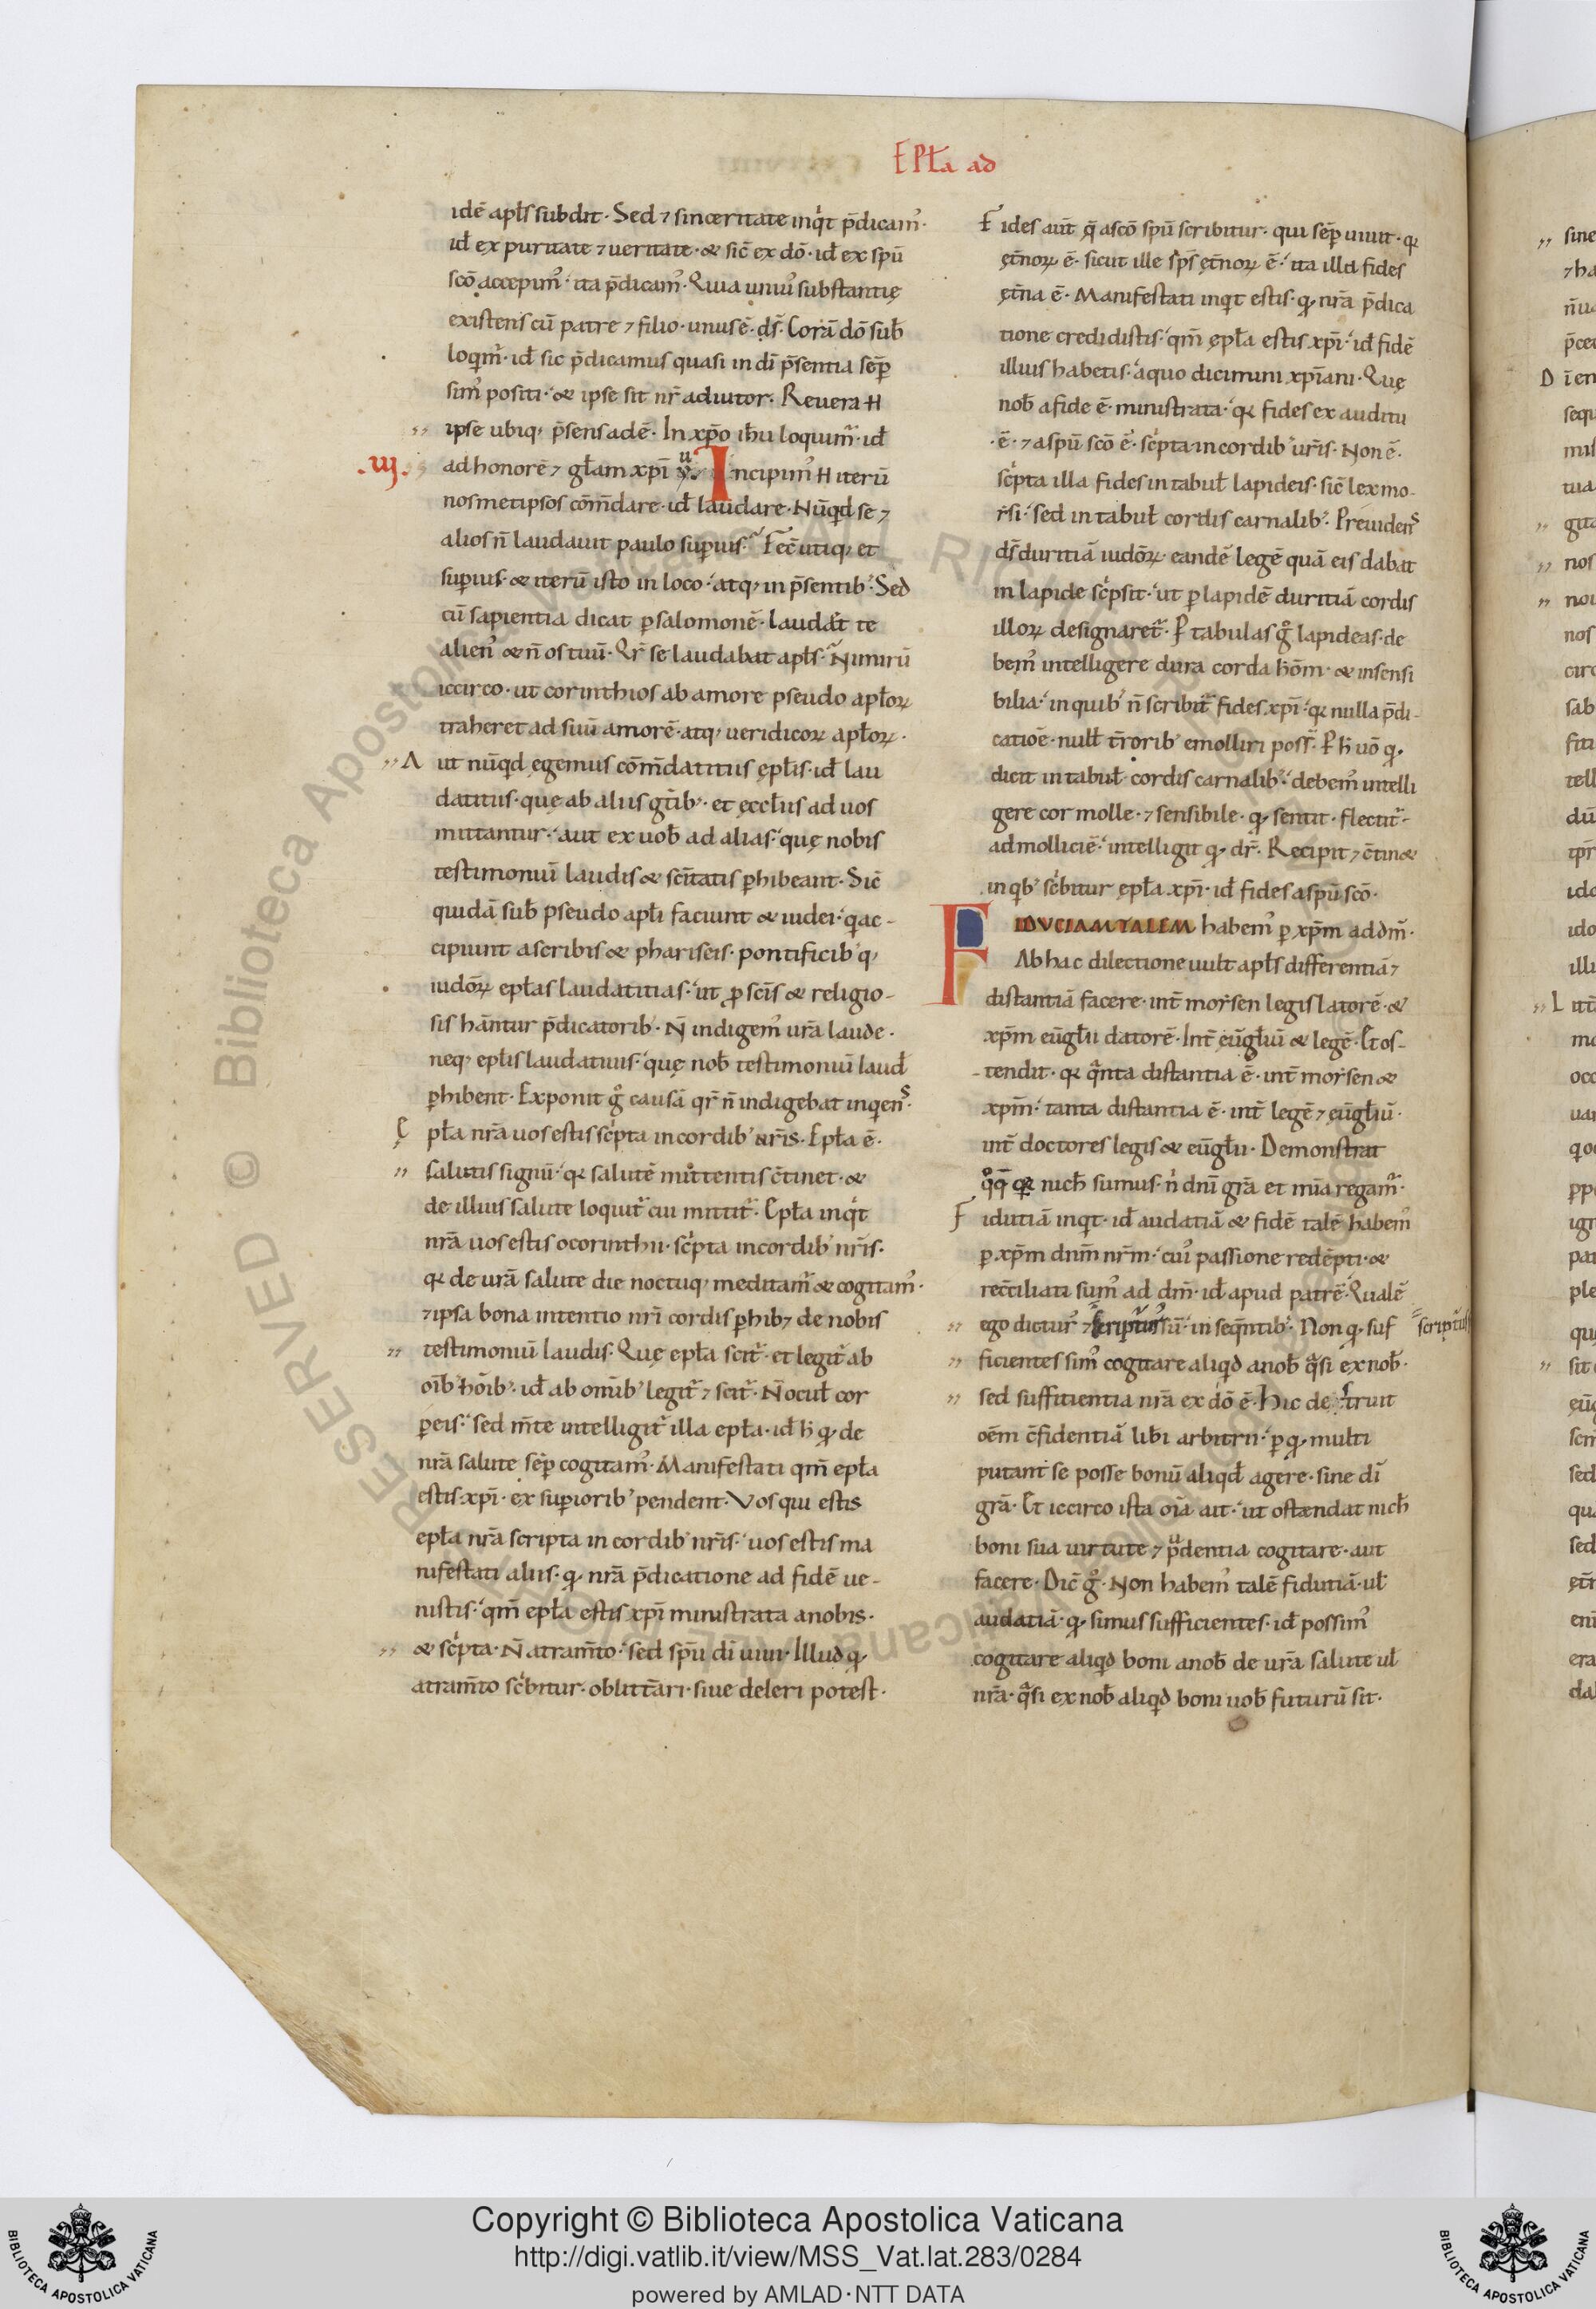 EPƚa ad
idē apƚs subdit· Sed ⁊ sinceritate inqͥt p̄dicam᾽·
id̵ ex puritate ⁊ ueritate· & sic̄ ex dō· id̵ ex spū
scō accepim᾽· ita p̄dicam᾽· Quia uniu᾽ substantię
existens cū patre ⁊ filio· unus ē· ds̄· Corā dō sub̵
loqm̄᾽· id̵ sic p̄dicamus quasi in dī p̄sentia sēp̄
sim᾽ positi· & ipse sit nr̄ adiutor· Reuera H
ipse ubiq; p̄sens adē· In xp̄o ih̄u loquim̄᾽· id̵
·III· ad honorē ⁊ gƚam xpī Incipim᾽ H iterū
nosmetipsos cōm̄dare· id̵ laudare· Nūqd se ⁊
alios n̄ laudauit paulo supius· Fec̄ utiq; et
supius· & iterū isto in loco· atq; in p̄sentib᾽· Sed
cū sapientia dicat p̲ salomonē· laudet te
alien᾽ & n̄ os tuū· Qr̄ se laudabat apƚs· Nimirū
iccirco· ut corinthios ab amore pseudo apƚoꝝ
traheret ad suū amorē· atq; ueridicoꝝ apƚoꝝ·
A ut nūqd egemus cōm̄datitiis ępƚis· id̵ lau
datitiis· quę ab aliis gt̄ib᾽· et ęccƚiis ad uos
mittantur· aut ex uob̵ ad alias· quę nobis
testimoniū laudis & sc̄itatis p̲hibeant· Sic̄
quidā sub̵ pseudo apƚi faciunt & iudei· q ac-
cipiunt a scribis & phariseis· pontificib᾽ q;
iudōꝝ epƚas laudatitias· ut p̲ sc̄is & religio-
sis hāntur p̄dicatorib᾽· N̄ indigem᾽ urā laude·
neq; epƚis laudatiuis· quę nob̵ testimoniū laud̵
p̲hibent· Exponit gͦ causā qr̄ n̄ indigebat inqens·
Ępƚa nrā uos estis scͥpta in cordib᾽ nrīs· Epƚa ē·
salutis signū· qꝛ salutē mittentis c̄tinet· &
de illius salute loquit᾽ cui mittit᾽· Epƚa inqͥt
nrā uos estis o corinthii· scͥpta in cordib᾽ nrīs·
qꝛ de urā salute die noctuq; meditam᾽ & cogitam᾽·
⁊ ipsa bona intentio nrī cordis p̲hib; de nobis
testimoniū laudis· Quę epƚa scit᾽· et legit᾽ ab
oīb᾽ hōib᾽· id̵ ab omīb᾽ legit᾽ ⁊ scit᾽· N̄ ocuƚ cor
p̲eis· sed m̄te intelligit᾽ illa epƚa· id̵ h̄ q; de
nrā salute sēp cogitam᾽· Manifestati qm̄ epƚa
estis xpī· ex superiorib᾽ pendent· Vos qui estis
epƚa nrā scripta in cordib᾽ nrīs· uos estis ma
nifestati aliis· q; nrā p̄dicatione ad fidē ue-
nistis· qm̄ epƚa estis xpī ministrata a nobis·
& scͥpta· N̄ atram̄to· sed spū dī uiui· Illud q;
atram̄to scͥbitur· oblitt̄ari· siue deleri potest·
Fides aut̄ q̄ a scō spū scribitur· qui sēp uiuit· qꝛ
ęt̄noꝝ ē· sicut ille sp̄s ęt̄noꝝ ē· ita illa fides
ęt̄na ē· Manifestati inqt estis· q; nrā p̄dica
tione credidistis· qm̄ ępƚa estis xpī· id̵ fidē
illius habetis· a quo dicimini xpīani· Quę
nob̵ a fide ē· ministrata· qꝛ fides ex auditu
·ē· ⁊ a spū scō ē· scͥpta in cordib᾽ urīs· Non ē·
scͥpta illa fides in tabuƚ lapideis· sic̄ lex mo-
r̄si· sed in tabuƚ cordis carnalib᾽· Preuidens
ds̄ duritiā iudōꝝ· eandē legē quā eis dabat
in lapide scͥpsit· ut p̲ lapidē duritiā cordis
illoꝝ designaret᾽· P tabulas gͦ lapideas· de
bem᾽ intelligere dura corda hōm̄· & insensi
bilia· in quib᾽ n̄ scribit᾽ fides xpī· qꝛ nulla p̄di-
catiōe· nulƚ t̄rorib᾽ emolliri poss̄· P h̄ uō q;
dicit in tabuƚ cordis carnalib᾽· debem᾽ intelli
gere cor molle· ⁊ sensibile· q; sentit· flectit᾽·
ad molliciē· intelligit q; dr̄· Recipit ⁊ c̄tin&
in qb᾽ scͥbitur ępƚa xpī· id̵ fides a spū scō·
FIDUCIAM TALEM habem᾽ p̲ xp̄m ad dm̄·
Ab hac dilectione uult apƚs differentiā ⁊
distantiā facere· int̄ mor̄sen legislatorē· &
xp̄m eūgƚii datorē· Int̄ eūgƚiū & legē· Et os-
tendit· qꝛ qͣnta distantia ē· int̄ mor̄sen &
xp̄m· tanta distantia ē· int̄ legē ⁊ eūgƚiū·
int̄ doctores legis & eūgƚii· Demonstrat
qͦq̄ qꝛ nich̵ sumus· nͥ dnī grā et mīa regam᾽·
Fidutiā inqt· id̵ audatiā & fidē talē habem᾽
p̲ xp̄m dnm̄ nrm̄· cui᾽ passione redēpti· &
rec̄ciliati sum᾽ ad dm̄· id̵ apud patrē· Qualē
ego dictur᾽ ⁊ scriptur᾽ sū· in seqn̄tib᾽· Non q; suf scriptur᾽
ficientes sim᾽ cogitare aliqd a nob̵ qͣsi ex nob̵·
sed suffitientia nrā ex dō ē· Hic destruit
oēm c̄fidentiā libi arbitrii· p̲ q; multi
putant se posse bonū aliqd̵ agere· sine dī
grā· Et iccirco ista oīa ait· ut ostendat nich̵
boni sua uirtute ⁊ p̄dentia cogitare· aut
facere· Dic̄ gͦ· Non habem᾽ talē fidutiā· uƚ
audatiā· q; simus sufficientes· id̵ possim᾽
cogitare aliqd boni a nob̵ de urā salute uƚ
nrā· qͣsi ex nob̵ aliqd boni uob̵ futurū sit·
Copyright © Biblioteca Apostolica Vaticana
http://digi.vatlib.it/view/MSS_Vat.lat.283/0284
powered by AMLAD·NTT DATA
BIBLIOTECA APOSTOLICA VATICANA
BIBLIOTECA APOSTOLICA VATICANA